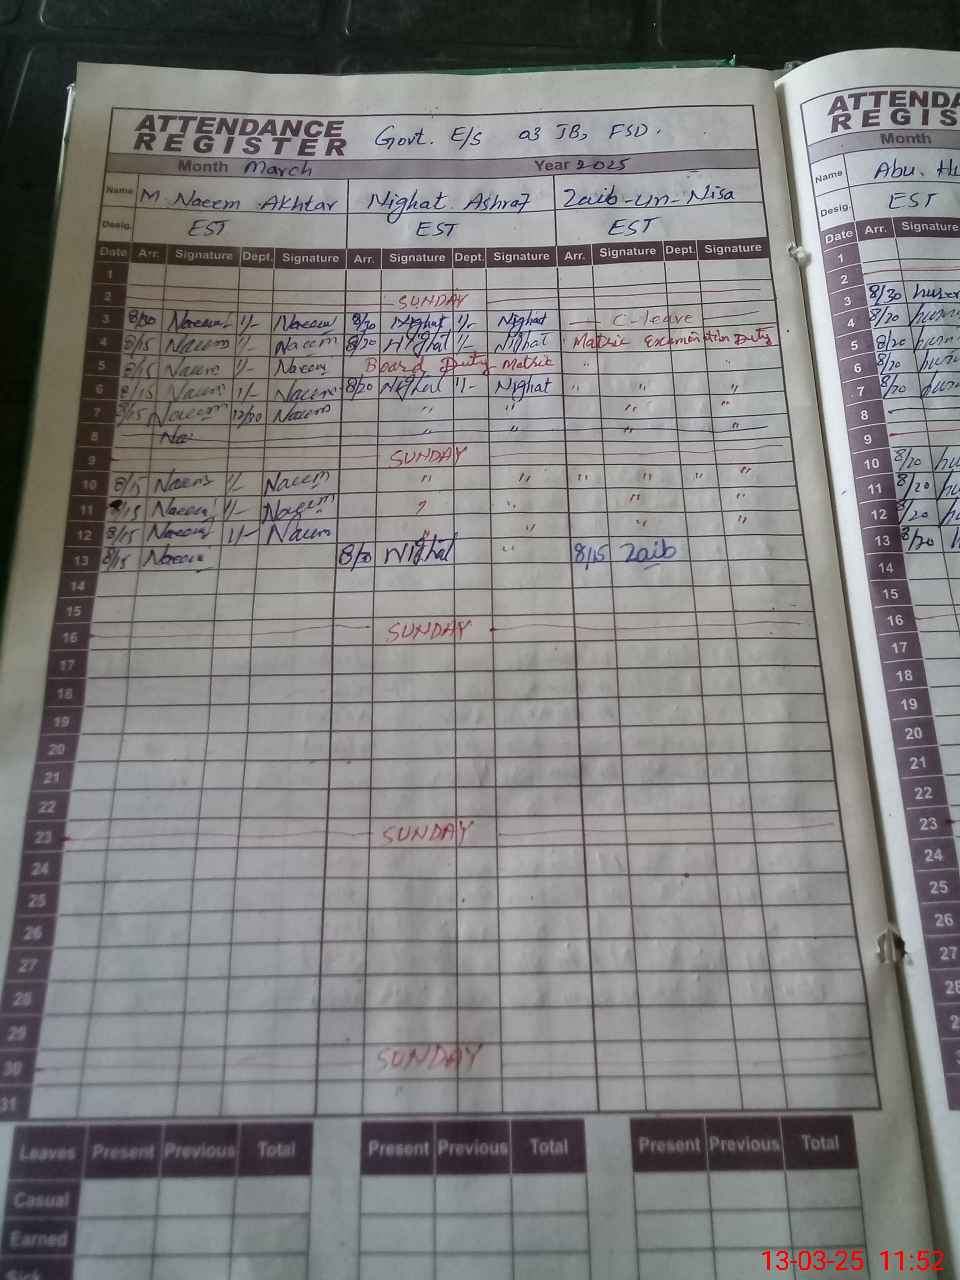 ATTENDANCE REGISTER Govt. E/S 03 JB, FSD.
Month March Year 2025
Name M. Naeem Akhtar Nighat Ashraf Zaib-un-Nisa
Desig. EST EST EST
Date Arr. Signature Dept. Signature Arr. Signature Dept. Signature Arr. Signature Dept. Signature
1
2 SUNDAY
3 8/30 Naeem 1/- Naeem 8/30 Nighat 1/- Nighat C-leave
4 8/15 Naeem 1/- Naeem 8/20 Nighat 1/- Nighat Matric Examination Duty
5 8/15 Naeem 1/- Naeem Board Duty Matric " "
6 8/15 Naeem 1/- Naeem 8/20 Nighat 1/- Nighat " " "
7 8/15 Naeem 12/30 Naeem " " " "
8 Na " " " "
9 SUNDAY
10 8/15 Naeem 1/- Naeem " " " " " "
11 8/15 Naeem 1/- Naeem " " " "
12 8/15 Naeem 1/- Naeem " " " "
13 8/15 Naeem 8/30 Nighat " 8/15 Zaib
14
15
16 SUNDAY
17
18
19
20
21
22
23 SUNDAY
24
25
26
27
28
29
30 SUNDAY
31
Leaves Present Previous Total Present Previous Total Present Previous Total
Casual
Earned
Sick
ATTENDA
REGIS
Month
Name Abu. Hu
Desig. EST
Date Arr. Signature
1
2
3 8/30
4 8/20
5 8/20
6 8/20
7 8/20
8
9
10 8/20
11 8/20
12 8/20
13 8/20
14
15
16
17
18
19
20
21
22
23
24
25
26
27
28
13-03-25 11:52